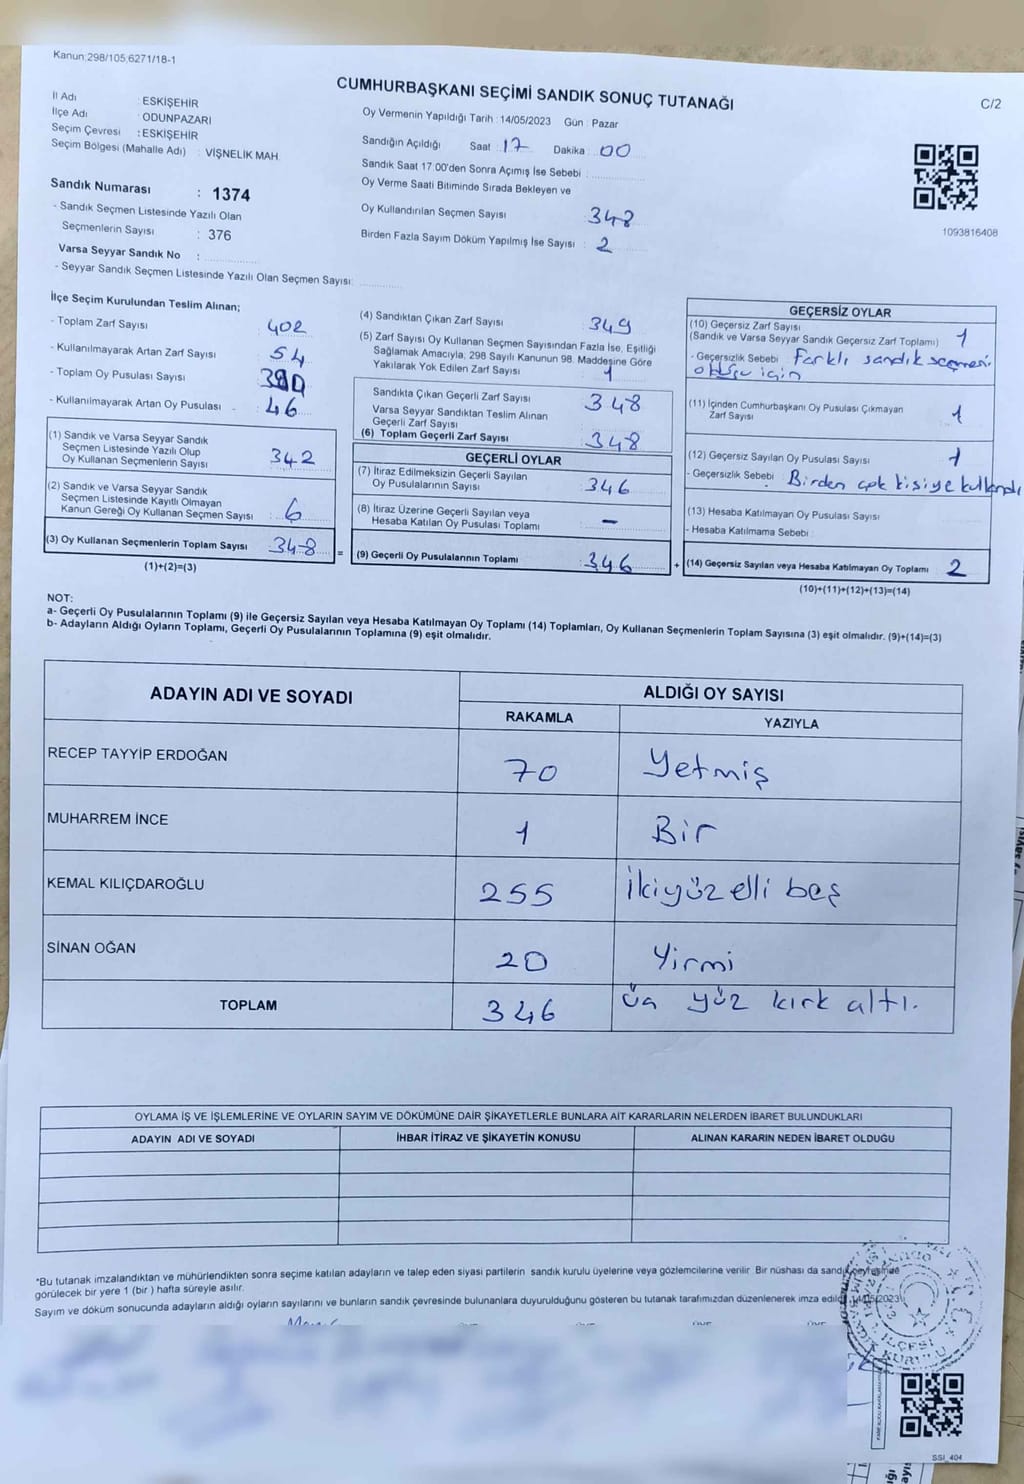 Kanun:298/105;6271/18-1
CUMHURBAŞKANI SEÇİMİ SANDIK SONUÇ TUTANAĞI
C/2
İl Adı : ESKİŞEHİR
İlçe Adı : ODUNPAZARI
Seçim Çevresi : ESKİŞEHİR
Seçim Bölgesi (Mahalle Adı) : VİŞNELİK MAH.
Sandık Numarası : 1374
- Sandık Seçmen Listesinde Yazılı Olan
Seçmenlerin Sayısı : 376
Varsa Seyyar Sandık No :
- Seyyar Sandık Seçmen Listesinde Yazılı Olan Seçmen Sayısı:
Oy Vermenin Yapıldığı Tarih :14/05/2023 Gün : Pazar
Sandığın Açıldığı Saat : 17 Dakika : 00
Sandık Saat 17:00'den Sonra Açımış İse Sebebi :
Oy Verme Saati Bitiminde Sırada Bekleyen ve
Oy Kullandırılan Seçmen Sayısı : 348
Birden Fazla Sayım Döküm Yapılmış İse Sayısı : 2
1093816408
İlçe Seçim Kurulundan Teslim Alınan;
- Toplam Zarf Sayısı : 402
- Kullanılmayarak Artan Zarf Sayısı : 54
- Toplam Oy Pusulası Sayısı :
- Kullanılmayarak Artan Oy Pusulası : 46
(1) Sandık ve Varsa Seyyar Sandık
Seçmen Listesinde Yazılı Olup
Oy Kullanan Seçmenlerin Sayısı : 342
(2) Sandık ve Varsa Seyyar Sandık
Seçmen Listesinde Kayıtlı Olmayan
Kanun Gereği Oy Kullanan Seçmen Sayısı : 6
(3) Oy Kullanan Seçmenlerin Toplam Sayısı : 348 =
(1)+(2)=(3)
(4) Sandıktan Çıkan Zarf Sayısı : 349
(5) Zarf Sayısı Oy Kullanan Seçmen Sayısından Fazla İse, Eşitliği
Sağlamak Amacıyla, 298 Sayılı Kanunun 98. Maddesine Göre
Yakılarak Yok Edilen Zarf Sayısı : 1
Sandıkta Çıkan Geçerli Zarf Sayısı : 348
Varsa Seyyar Sandıktan Teslim Alınan
Geçerli Zarf Sayısı
(6) Toplam Geçerli Zarf Sayısı : 348
GEÇERLİ OYLAR
(7) İtiraz Edilmeksizin Geçerli Sayılan
Oy Pusulalarının Sayısı : 346
(8) İtiraz Üzerine Geçerli Sayılan veya
Hesaba Katılan Oy Pusulası Toplamı : -
(9) Geçerli Oy Pusulalarının Toplamı : 346 +
GEÇERSİZ OYLAR
(10) Geçersiz Zarf Sayısı : 1
(Sandık ve Varsa Seyyar Sandık Geçersiz Zarf Toplamı)
- Geçersizlik Sebebi : Farklı sandık seçmeni
olduğu için
(11) İçinden Cumhurbaşkanı Oy Pusulası Çıkmayan
Zarf Sayısı : 1
(12) Geçersiz Sayılan Oy Pusulası Sayısı : 1
- Geçersizlik Sebebi : Birden çok kişiye kullandı
(13) Hesaba Katılmayan Oy Pusulası Sayısı :
- Hesaba Katılmama Sebebi :
(14) Geçersiz Sayılan veya Hesaba Katılmayan Oy Toplamı : 2
(10)+(11)+(12)+(13)=(14)
NOT:
a- Geçerli Oy Pusulalarının Toplamı (9) ile Geçersiz Sayılan veya Hesaba Katılmayan Oy Toplamı (14) Toplamları, Oy Kullanan Seçmenlerin Toplam Sayısına (3) eşit olmalıdır. (9)+(14)=(3)
b- Adayların Aldığı Oyların Toplamı, Geçerli Oy Pusulalarının Toplamına (9) eşit olmalıdır.
ADAYIN ADI VE SOYADI ALDIĞI OY SAYISI
RAKAMLA YAZIYLA
RECEP TAYYİP ERDOĞAN 70 Yetmiş
MUHARREM İNCE 1 Bir
KEMAL KILIÇDAROĞLU 255 İkiyüz elli beş
SİNAN OĞAN 20 Yirmi
TOPLAM 346 üç yüz kırk altı.
OYLAMA İŞ VE İŞLEMLERİNE VE OYLARIN SAYIM VE DÖKÜMÜNE DAİR ŞİKAYETLERLE BUNLARA AİT KARARLARIN NELERDEN İBARET BULUNDUKLARI
ADAYIN ADI VE SOYADI İHBAR İTİRAZ VE ŞİKAYETİN KONUSU ALINAN KARARIN NEDEN İBARET OLDUĞU
*Bu tutanak imzalandıktan ve mühürlendikten sonra seçime katılan adayların ve talep eden siyasi partilerin sandık kurulu üyelerine veya gözlemcilerine verilir. Bir nüshası da sandık çevresinde
görülecek bir yere 1 (bir ) hafta süreyle asılır.
Sayım ve döküm sonucunda adayların aldığı oyların sayılarını ve bunların sandık çevresinde bulunanlara duyurulduğunu gösteren bu tutanak tarafımızdan düzenlenerek imza edildi. 14/05/2023
T.C.
İLÇESİ
SANDIK KURULU
SSI_404